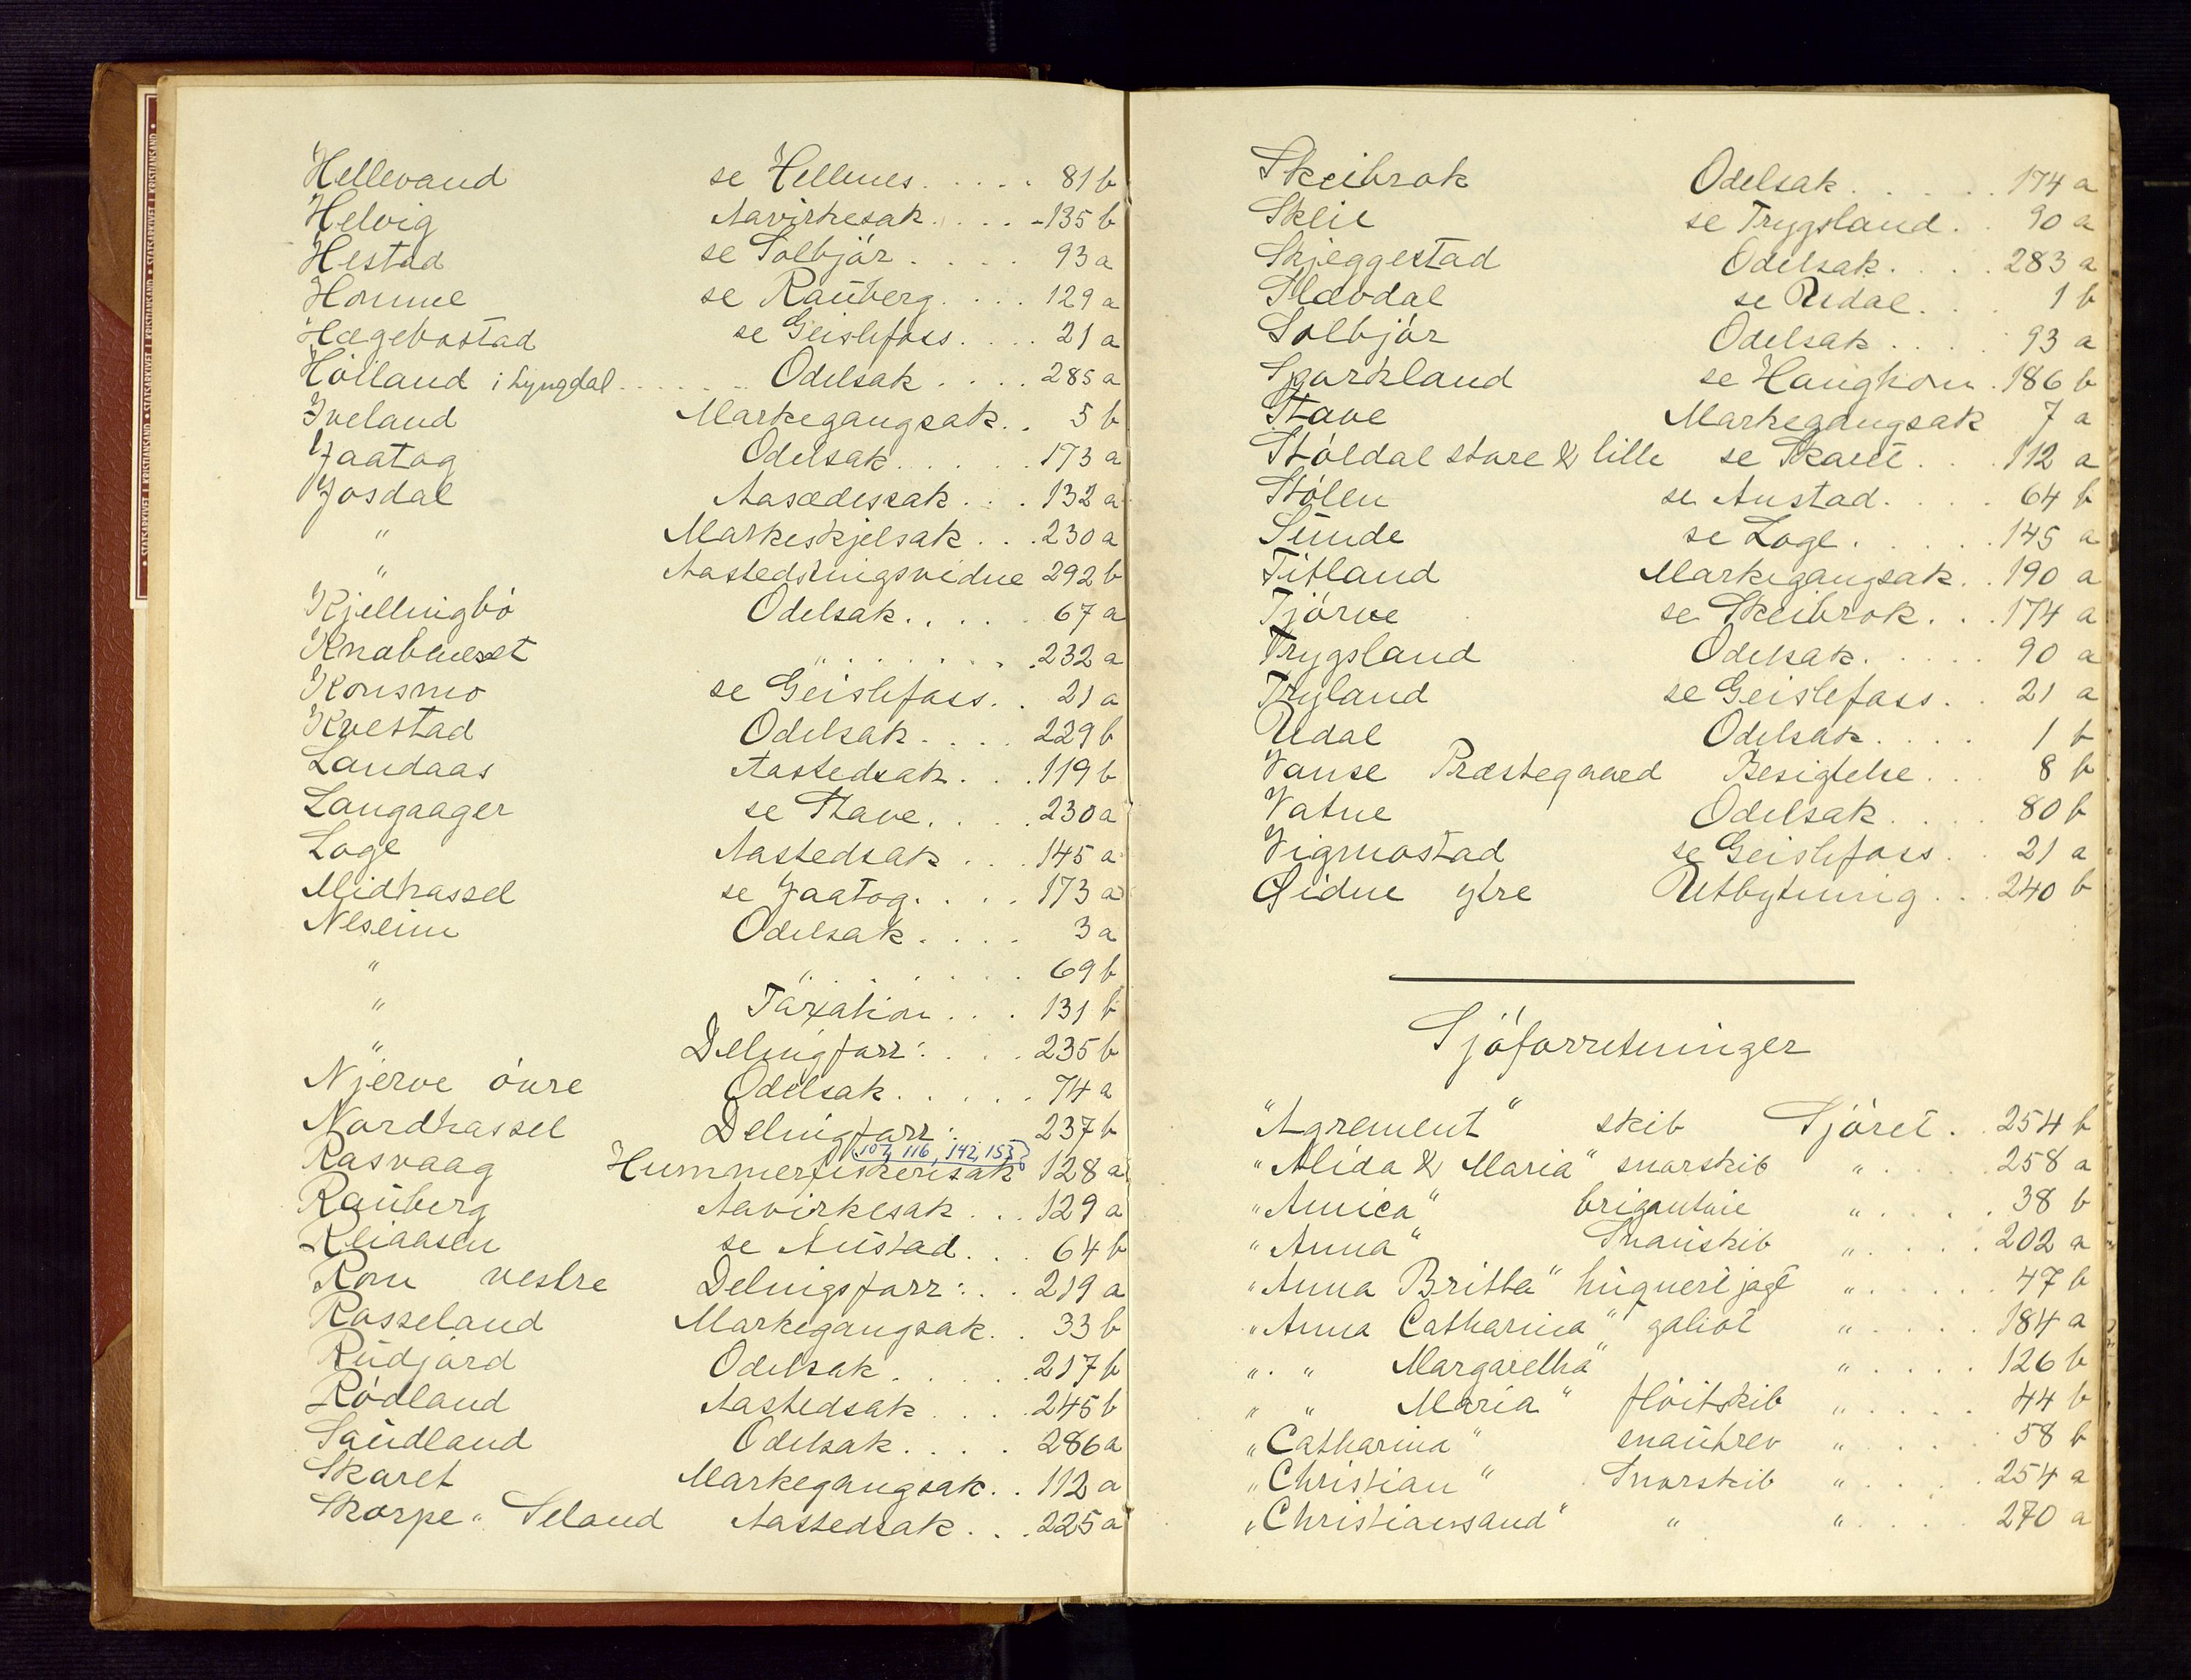 Hellevand se Hellenes..... 81 b
Helvig Aavirkesak..... 135 b
Hestad se Solbjör.... 93 a
Homme se Rauberg.... 129 a
Hægebostad se Geislefoss.... 21 a
Hölland i Lyngdal...... Odelsak.... 285 a
Iveland Markegangsak.. 5 b
Jaatog Odelsak..... 173 a
Josdal Aasædessak... 132 a
" Markeskjelsak... 230 a
" Aastedstingsvidne 292 b
Kjellingbö Odelsak..... 67 a
Knabeneset "....... 232 a
Konsmo se Geislefoss.. 21 a
Kvestad Odelsak.... 229 b
Landaas Aastedsak... 119 b
Langaager se Stave.... 230 a
Loge Aastedsak... 145 a
Midhassel se Jaatog.... 173 a
Neseim Odelsak.... 3 a
" "...... 69 b
" Taxation... 131 b
" Delingforr:.... 235 b
Njerve övre Odelsak..... 74 a
Nordhassel Delingforr:. 237 b
(107, 116, 142, 153)
Rasvaag Hummerfiskerisak 128 a
Rauberg Aavirkesak... 129 a
Reiaasen se Austad... 64 b
Rom vestre Delingsforr:.. 219 a
Rosseland Markegangsak.. 33 b
Rudjord Odelsak..... 217 b
Rödland Aastedsak.... 245 b
Saudland Odelsak.... 286 a
Skaret Markegangsak.. 112 a
Skorpe " Seland Aastedsak... 225 a
STATSARKIVET I KRISTIANSAND • STATSARKIVET I KRISTIANSAND •
Skeibrok Odelsak..... 174 a
Skeie se Trygsland.. 90 a
Skjeggestad Odelsak.... 283 a
Slævdal se Udal... 1 b
Solbjör Odelsak.... 93 a
Sparkland se Haughom. 186 b
Stave Markegangsak 7 a
Stöldal store & lille se Skaret... 112 a
Stölen se Austad.... 64 b
Sunde se Loge..... 145 a
Titland Markegangsak.. 190 a
Tjörve se Skeibrok... 174 a
Trygsland Odelsak..... 90 a
Tryland se Geislefoss.. 21 a
Udal Odelsak.... 1 b
Vanse Præstegaard Besigtelse... 8 b
Vatne Odelsak.... 80 b
Vigmostad se Geislefoss.. 21 a
Öidne ytre Utbytning... 240 b
Sjöforretninger
"Agrement" skib Sjöret.. 254 b
"Alida & Maria" snorskib ".... 258 a
"Amica" brigantine "..... 38 b
"Anna" Snauskib ".... 202 a
"Anna Britta" huquert jagt "..... 47 b
"Anna Catharina" galiot ".... 184 a
" " Margaretha" ".... 126 b
" " Maria" flöitskib ".... 44 b
"Catharina" snaubrev ".... 58 b
"Christian" Snorskib ".... 254 a
"Christiansand" " ".... 270 a